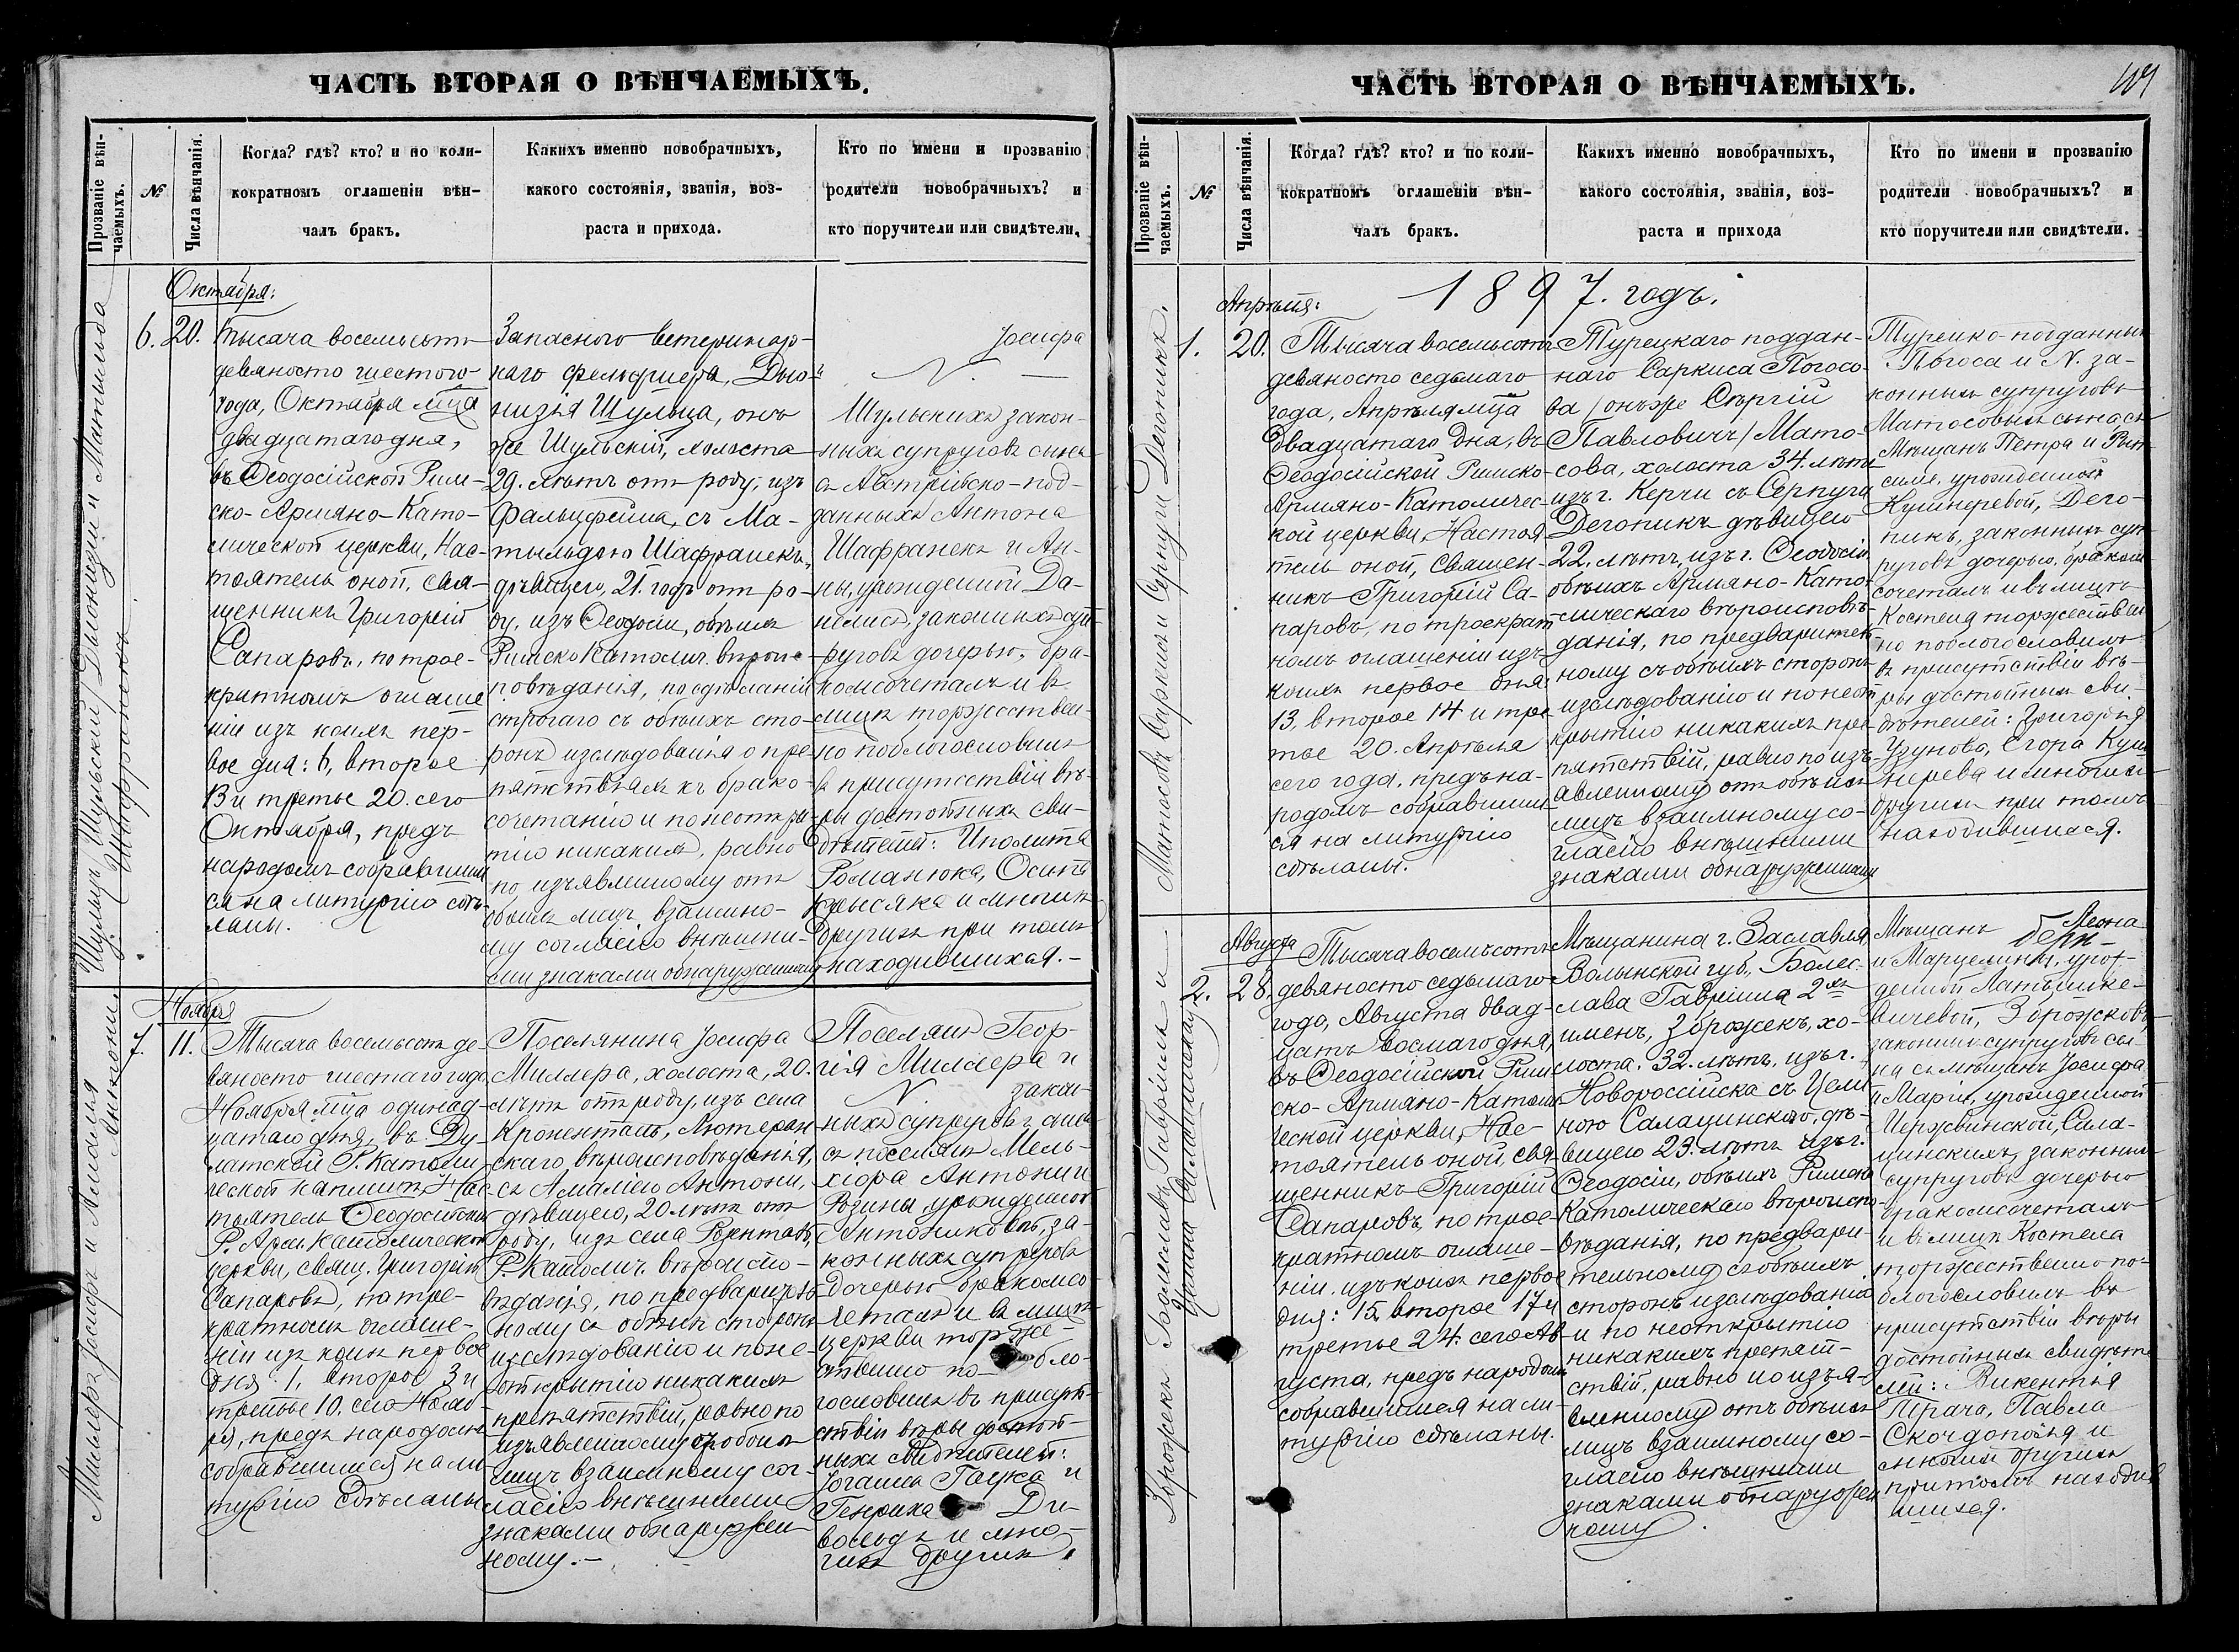 ЧАСТЬ ВТОРАЯ О ВѢНЧАЕМЫХЪ.
Прозваніе вѣн-
чаемыхъ.
№
Числа вѣнчанія.
Когда? гдѣ? кто? и по коли-
кократномъ оглашеніи вѣн-
чалъ бракъ.
Какихъ именно новобрачныхъ,
какого состоянія, званія, воз-
раста и прихода.
Кто по имени и прозванію
родители новобрачныхъ? и
кто поручители или свидѣтели.
Шульцъ/Шульскій/Діонизій и Матильда
Шафранекъ
Октября:
6. 20.
Тысяча восемьсотъ
девяносто шестого
года, Октября мца
двадцатаго дня,
въ Ѳеодосійской Рим-
ско-Армяно-Като-
лической церкви, Нас-
тоятель оной, свя-
щенникъ Григорій
Сапаровъ, по трое-
кратномъ оглаше
ніи изъ коихъ пер-
вое дня: 6, второе
13 и третье 20. сего
Октября, предъ
народомъ собравшим
ся на литургію сдѣ-
ланы.
Запасного ветеринар-
наго фельдшера, Діо-
низія Шульца, онъ
же Шульскій, холоста
29. лѣтъ отъ роду, изъ
Фальцфейна, съ Ма-
тильдою Шафранекъ,
дѣвицею, 21. годъ отъ ро-
ду, изъ Ѳеодосіи, обѣихъ
Римско Католич. вѣроис-
повѣданія, по сдѣланіи
строгаго съ обѣихъ сто-
ронъ изслѣдованія о пре-
пятствіяхъ къ брако-
сочетанію и по неоткры-
тію никакихъ, равно
по изъявленному отъ
обоихъ лицъ взаимно-
му согласію внѣшни-
ми знаками обнаруженному
Іосифа
N. —
Шульскихъ закон-
ныхъ супруговъ сына
съ Австрійско-под-
данныхъ Антона
Шафранекъ и Ан-
ны, урожденной
законныхъ суп-
руговъ дочерью, бра-
комъ сочеталъ и въ
лицѣ торжествен-
но поблагословилъ
въ присутствіи вѣ-
ры достойныхъ сви-
дѣтелей: Иполита
Романюка, Осипа
Крысяка и многихъ
другихъ при томъ
находившихся. —
Миллеръ Іосифъ и Амалія
Антони.
Ноября
7. 11.
Тысяча восемьсотъ де-
вяносто шестаго года
Ноября мца одинад-
цатаго дня, въ Ду-
латской Р. Католи
ческой капличѣ, Нас
тоятель Ѳеодосійской
Р. Арм. Католической
церкви, свящ. Григорій
Сапаровъ, по трое-
кратномъ оглаше-
ніи изъ коихъ первое
дня: 1, второе 3 и
третье 10. сего Нояб-
ря, предъ народомъ
собравшимся на ли
тургію сдѣланы
Поселянина Іосифа
Миллера, холоста, 20.
лѣтъ отъ роду, изъ села
Кроненталь, Лютеран-
скаго вѣроисповѣданія,
съ Амаліею Антони,
дѣвицею, 20 лѣтъ отъ
роду, изъ села Розенталь,
Р. Католич. вѣроиспо-
вѣданія, по предваритель
ному съ обѣихъ сторонъ
изслѣдованію и поне-
открытію никакихъ
препятствій, равно по
изъявленному съ обоихъ
лицъ взаимному сог-
ласію внѣшними
знаками обнаружен
ному. —
Поселянъ Геор-
гія Миллера и
N. закон-
ныхъ супруговъ сына
съ поселянъ Мель-
хіора Антони и
Розины, урожденной
за-
конныхъ супруговъ
дочерью бракомъ со
четалъ и въ лицѣ
церкви торже-
ственно по- бла-
гословилъ въ присут-
ствіи вѣры достой-
ныхъ свидѣтелей:
Іоганна Гаука и
Генриха Ди-
вольдъ и мно-
гихъ другихъ.
ЧАСТЬ ВТОРАЯ О ВѢНЧАЕМЫХЪ.
Прозваніе вѣн-
чаемыхъ.
№
Числа вѣнчанія.
Когда? гдѣ? кто? и по коли-
кократномъ оглашеніи вѣн-
чалъ бракъ.
Какихъ именно новобрачныхъ,
какого состоянія, званія, воз-
раста и прихода
Кто по имени и прозванію
родители новобрачныхъ? и
кто поручители или свидѣтели.
1897. годъ.
Матосовъ Саркисъ и Серпуги Дегоникъ.
Апрѣля:
1. 20.
Тысяча восемьсотъ
девяносто седьмаго
года, Апрѣля мца
двадцатаго дня, въ
Ѳеодосійской Римско-
Армяно-Католичес-
кой церкви, Настоя
тель оной, Священ-
никъ Григорій Са-
паровъ, по троекрат
номъ оглашеніи изъ
коихъ первое дня:
13, второе 14 и тре-
тье 20. Апрѣля
сего года, предъ на-
родомъ собравшим
ся на литургію
сдѣланы.
Турецкаго поддан-
наго Саркиса Погосо-
ва /онъ же Сергій
Павловичъ/ Мато-
сова, холоста 34. лѣтъ
изъ г. Керчи съ Серпуги
Дегоникъ дѣвицею
22. лѣтъ, изъ г. Ѳеодосіи
обѣихъ Армяно-Като-
лическаго вѣроисповѣ-
данія, по предваритель-
ному съ обѣихъ сторонъ
изслѣдованію и по неот
крытію никакихъ пре-
пятствій, равно по изъ-
авленному отъ обѣихъ
лицъ взаимному со-
гласію внѣшними
знаками обнаруженному
Турецко-подданныхъ
Погоса и N. за-
конныхъ супруговъ
Матосовыхъ сына съ
Мѣщанъ Петра и
урожденной
Кушнеревой, Дего-
никъ, законныхъ суп
руговъ дочерью, бракомъ
сочеталъ и въ лицѣ
Костела торжествен
но поблагословилъ
въ присутствіи вѣ-
ры достойныхъ сви-
дѣтелей: Григорія
Узунова, Егора Куш
нерева и многихъ
другихъ при томъ
находившихся.
Збрożekъ Болеславъ Гавріилъ и
Цолина Салацинская
Августа
2. 28.
Тысяча восемьсотъ
девяносто седьмаго
года, Августа двад-
цать восмаго дня,
въ Ѳеодосійской Рим
ско-Армяно-Католи
ческой церкви, Нас-
тоятель оной, свя
щенникъ Григорій
Сапаровъ, по трое-
кратномъ оглаше-
ніи, изъ коихъ первое
дня: 15, второе 17 и
третье 24. сего Ав-
густа, предъ народомъ
собравшимся на ли-
тургію сдѣланы.
Мѣщанина г. Заславля,
Волынской губ., Болес-
слава Гавріила 2хъ
именъ, Зброжекъ, хо-
лоста, 32. лѣтъ, изъ г.
Новороссійска съ
Салацинскою, дѣ-
вицею 23. лѣтъ изъ г.
Ѳеодосіи, обѣихъ Римско
Католическаго вѣроиспо-
вѣданія, по предвари-
тельному съ обѣихъ
сторонъ изслѣдованію
и по неоткрытію
никакихъ препят-
ствій, равно по изъя-
вленному отъ обѣихъ
лицъ взаимному со-
гласію внѣшними
знаками обнаружен
ному.
Мѣщанъ Леона
и Марцелины, урож-
денной
Зброжековъ,
законныхъ супруговъ сы-
на съ мѣщанъ Іосифа
и Маріи, урожденной
Сала-
цинскихъ, законныхъ
супруговъ дочерью
бракомъ сочеталъ
и въ лицѣ Костела
торжественно по-
благословилъ въ
присутствіи вѣры
достойныхъ свидѣте
лей: Викентія
Павла
и
многихъ другихъ
при томъ находив
шихся.